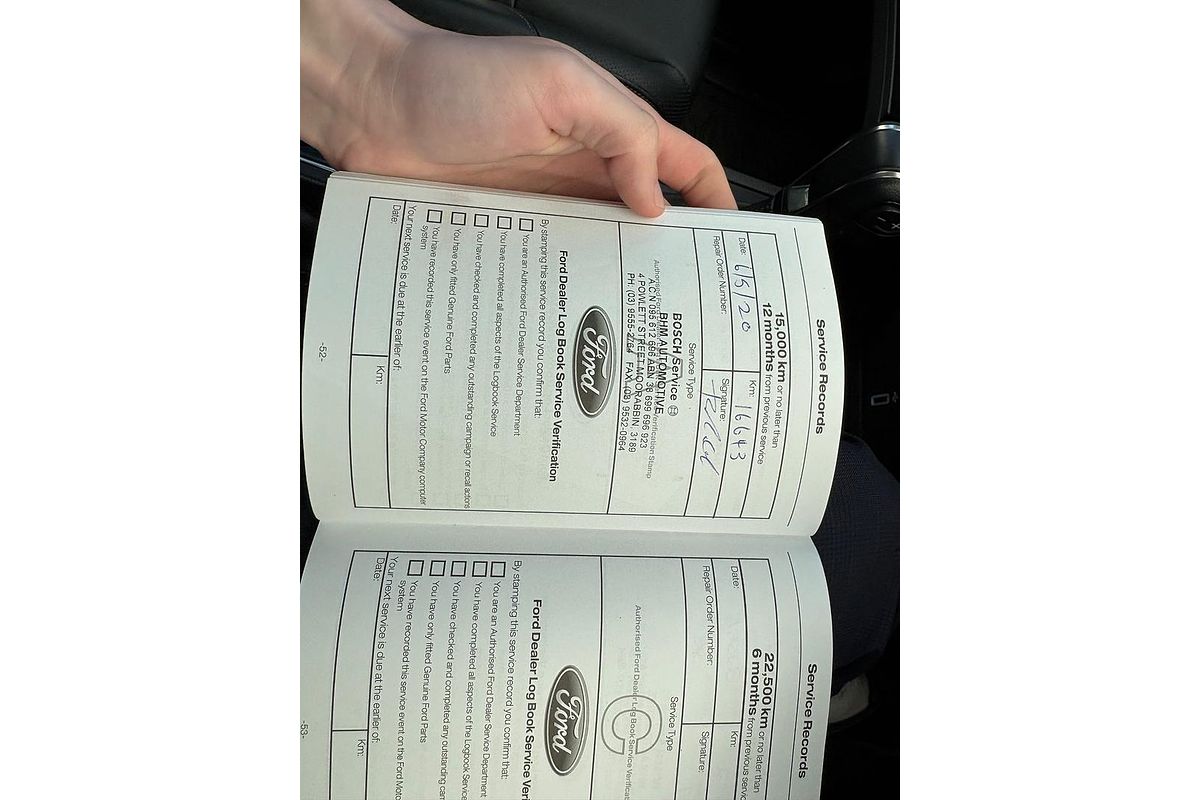 Service Records
15,000 km or no later than
12 months from previous service
Date: 6/5/20
Km: 16643
Repair Order Number:
Signature:
Service Type
Authorised Ford Verification Stamp
BOSCH Service
BHM AUTOMOTIVE
A.C.N 095 612 696 ABN 38 699 696 923
4 POWLETT STREET MOORABBIN, 3189
PH: (03) 9555-2764 FAX: (03) 9532-0964
Ford
Ford Dealer Log Book Service Verification
By stamping this service record you confirm that:
You are an Authorised Ford Dealer Service Department
You have completed all aspects of the Logbook Service
You have checked and completed any outstanding campaign or recall actions
You have only fitted Genuine Ford Parts
You have recorded this service event on the Ford Motor Company computer
system
Your next service is due at the earlier of:
Date:
Km:
-52-
Service Records
22,500 km or no later than
6 months from previous servic
Date:
Km:
Repair Order Number:
Signature:
Service Type
C
Authorised Ford Dealer Log Book Service Verificati
Ford
Ford Dealer Log Book Service Veri
By stamping this service record you confirm that:
You are an Authorised Ford Dealer Service Department
You have completed all aspects of the Logbook Service
You have checked and completed any outstanding cam
You have only fitted Genuine Ford Parts
You have recorded this service event on the Ford Moto
system
Your next service is due at the earlier of:
Date:
Km:
-53-